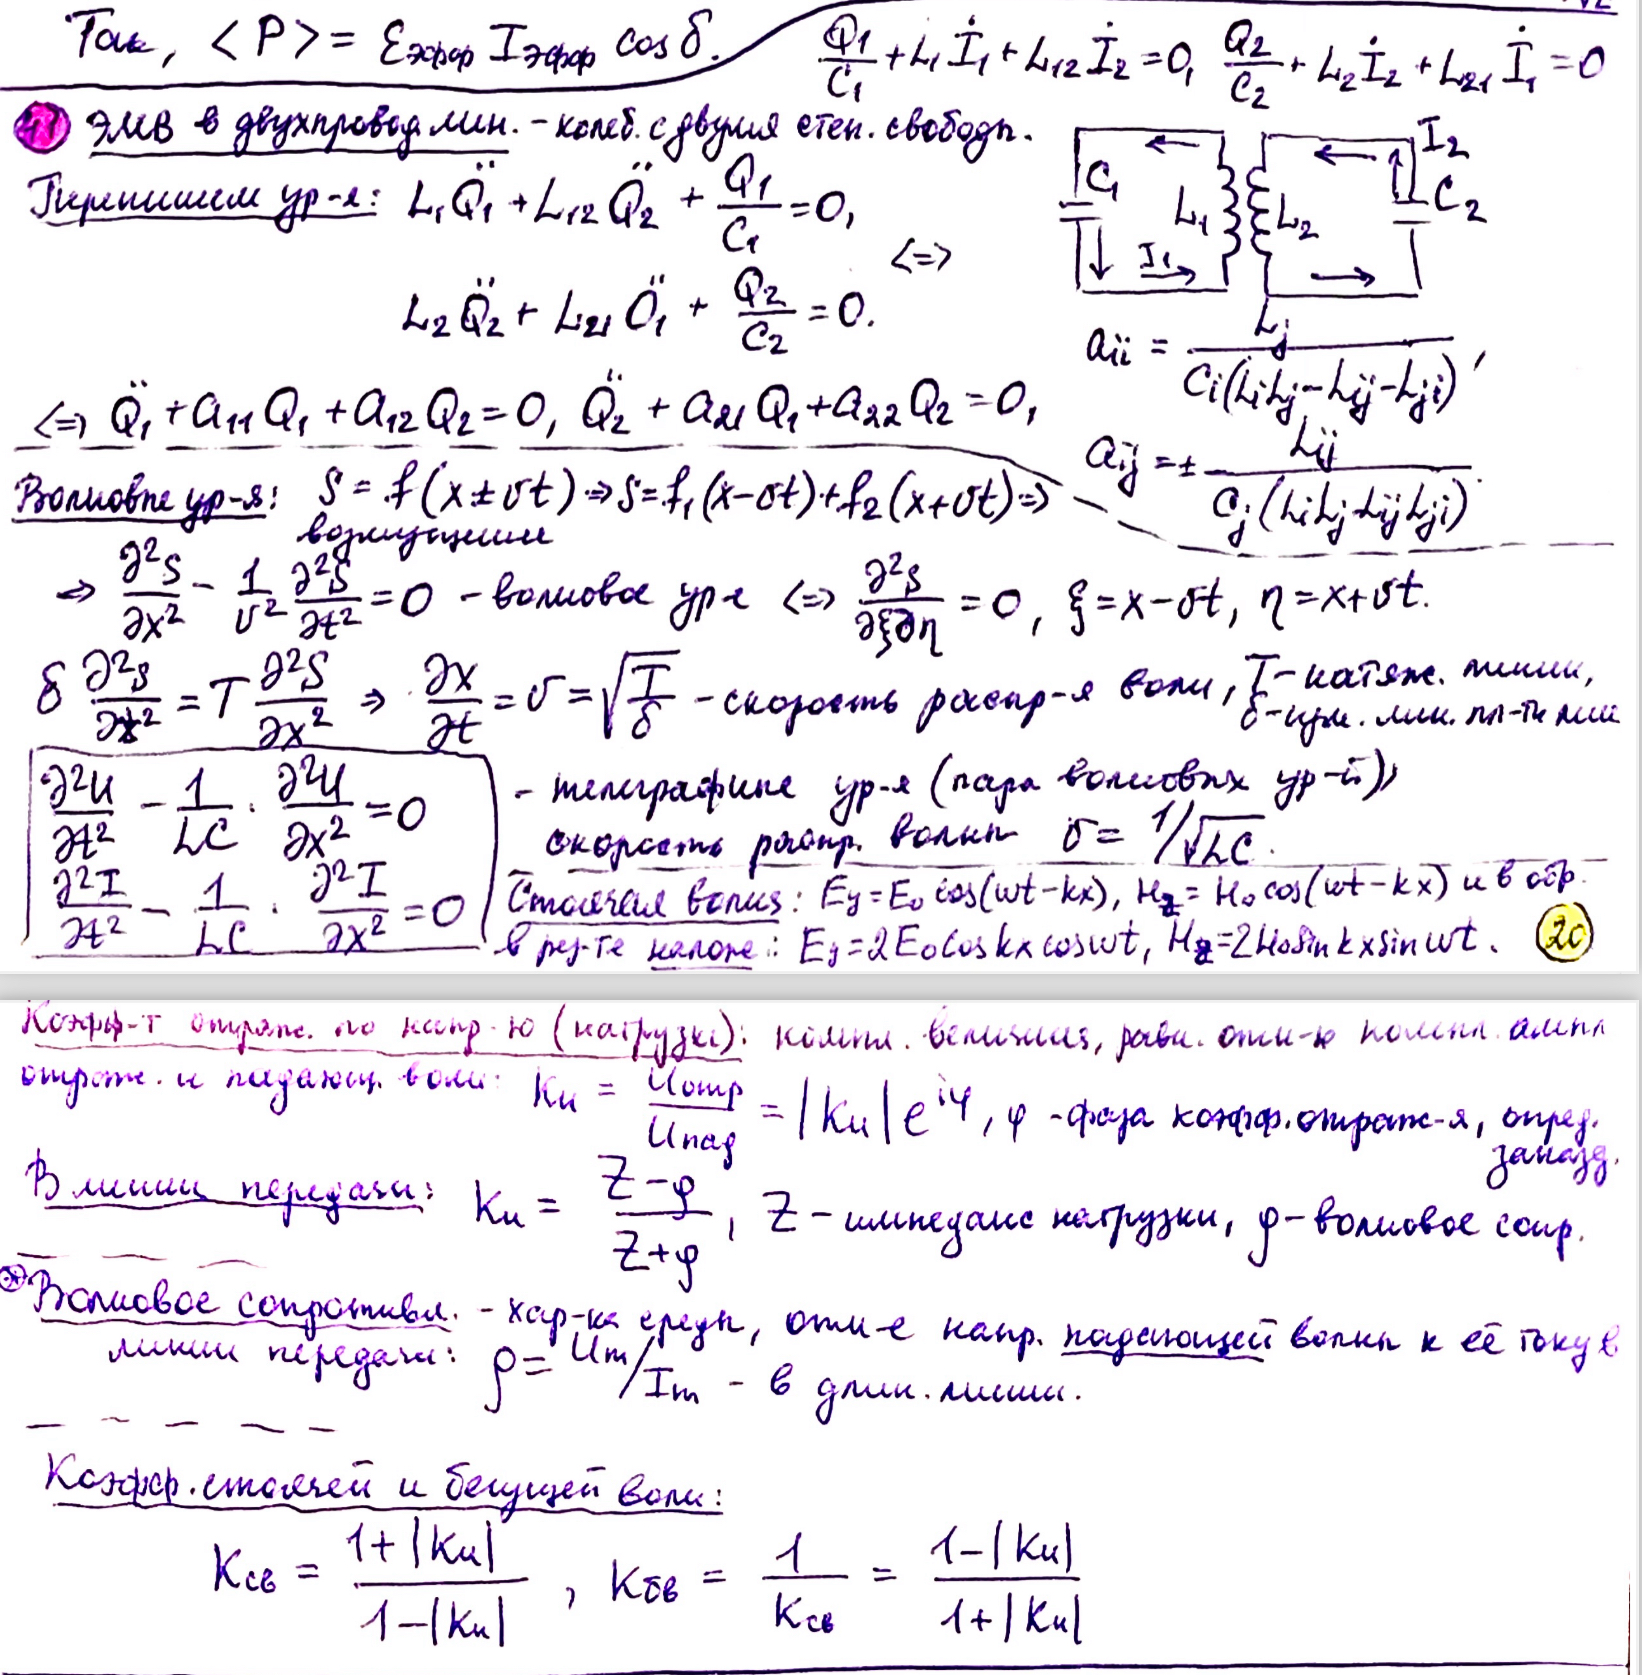 Так, <P> = Eэфф Iэфф cos δ.
Q1/C1 + L1 İ1 + L12 İ2 = 0, Q2/C2 + L2 İ2 + L21 İ1 = 0
ЭМВ в двухпровод. лин. – колеб. с двумя степ. свободы.
Перепишем ур-я: L1 Q̈1 + L12 Q̈2 + Q1/C1 = 0,
<=>
L2 Q̈2 + L21 Q̈1 + Q2/C2 = 0.
C1 I1 L1 L2 I2 C2
aii = Lj / Ci(LiLj – Lij – Lji),
<=> Q̈1 + a11 Q1 + a12 Q2 = 0, Q̈2 + a21 Q1 + a22 Q2 = 0,
aij = ± Lij / Cj(LiLj – LijLji).
Волновые ур-я: S = f(x ± υt) => S = f1(x – υt) + f2(x + υt) =>
возмущение
=> ∂²S/∂x² – 1/υ² ∂²S/∂t² = 0 – волновое ур-е <=> ∂²S/∂ξ∂η = 0, ξ = x – υt, η = x + υt.
δ ∂²S/∂t² = T ∂²S/∂x² => ∂x/∂t = υ = √(T/δ) – скорость распр-я волн, T – натяж. линии,
δ – лин. пл-ть
∂²U/∂t² – 1/LC · ∂²U/∂x² = 0
∂²I/∂t² – 1/LC · ∂²I/∂x² = 0
– телеграфные ур-я (пара волновых ур-й),
скорость распр. волны υ = 1/√LC.
Стоячая волна: Ey = E0 cos(ωt – kx), Hz = H0 cos(ωt – kx) и в обр.
в рез-те налож.: Ey = 2E0 cos kx cos ωt, Hz = 2H0 sin kx sin ωt.
20
Коэфф-т отраж. по напр-ю (нагрузки): компл. величина, равн. отн-ю компл. ампл
отраж. и падающ. волн: Ku = Uотр/Uпад = |Ku| e^iφ, φ – фаза коэфф. отраж-я, опред.
запазд.
В линии передачи: Ku = Z – ρ / Z + ρ, Z – импеданс нагрузки, ρ – волновое сопр.
Волновое сопротивл. – хар-ка среды, отн-е напр. падающей волны к её току в
линии передачи: ρ = Um/Im – в длин. линии.
Коэфф. стоячей и бегущей волн:
Kсв = 1 + |Ku| / 1 – |Ku|, Kбв = 1/Kсв = 1 – |Ku| / 1 + |Ku|